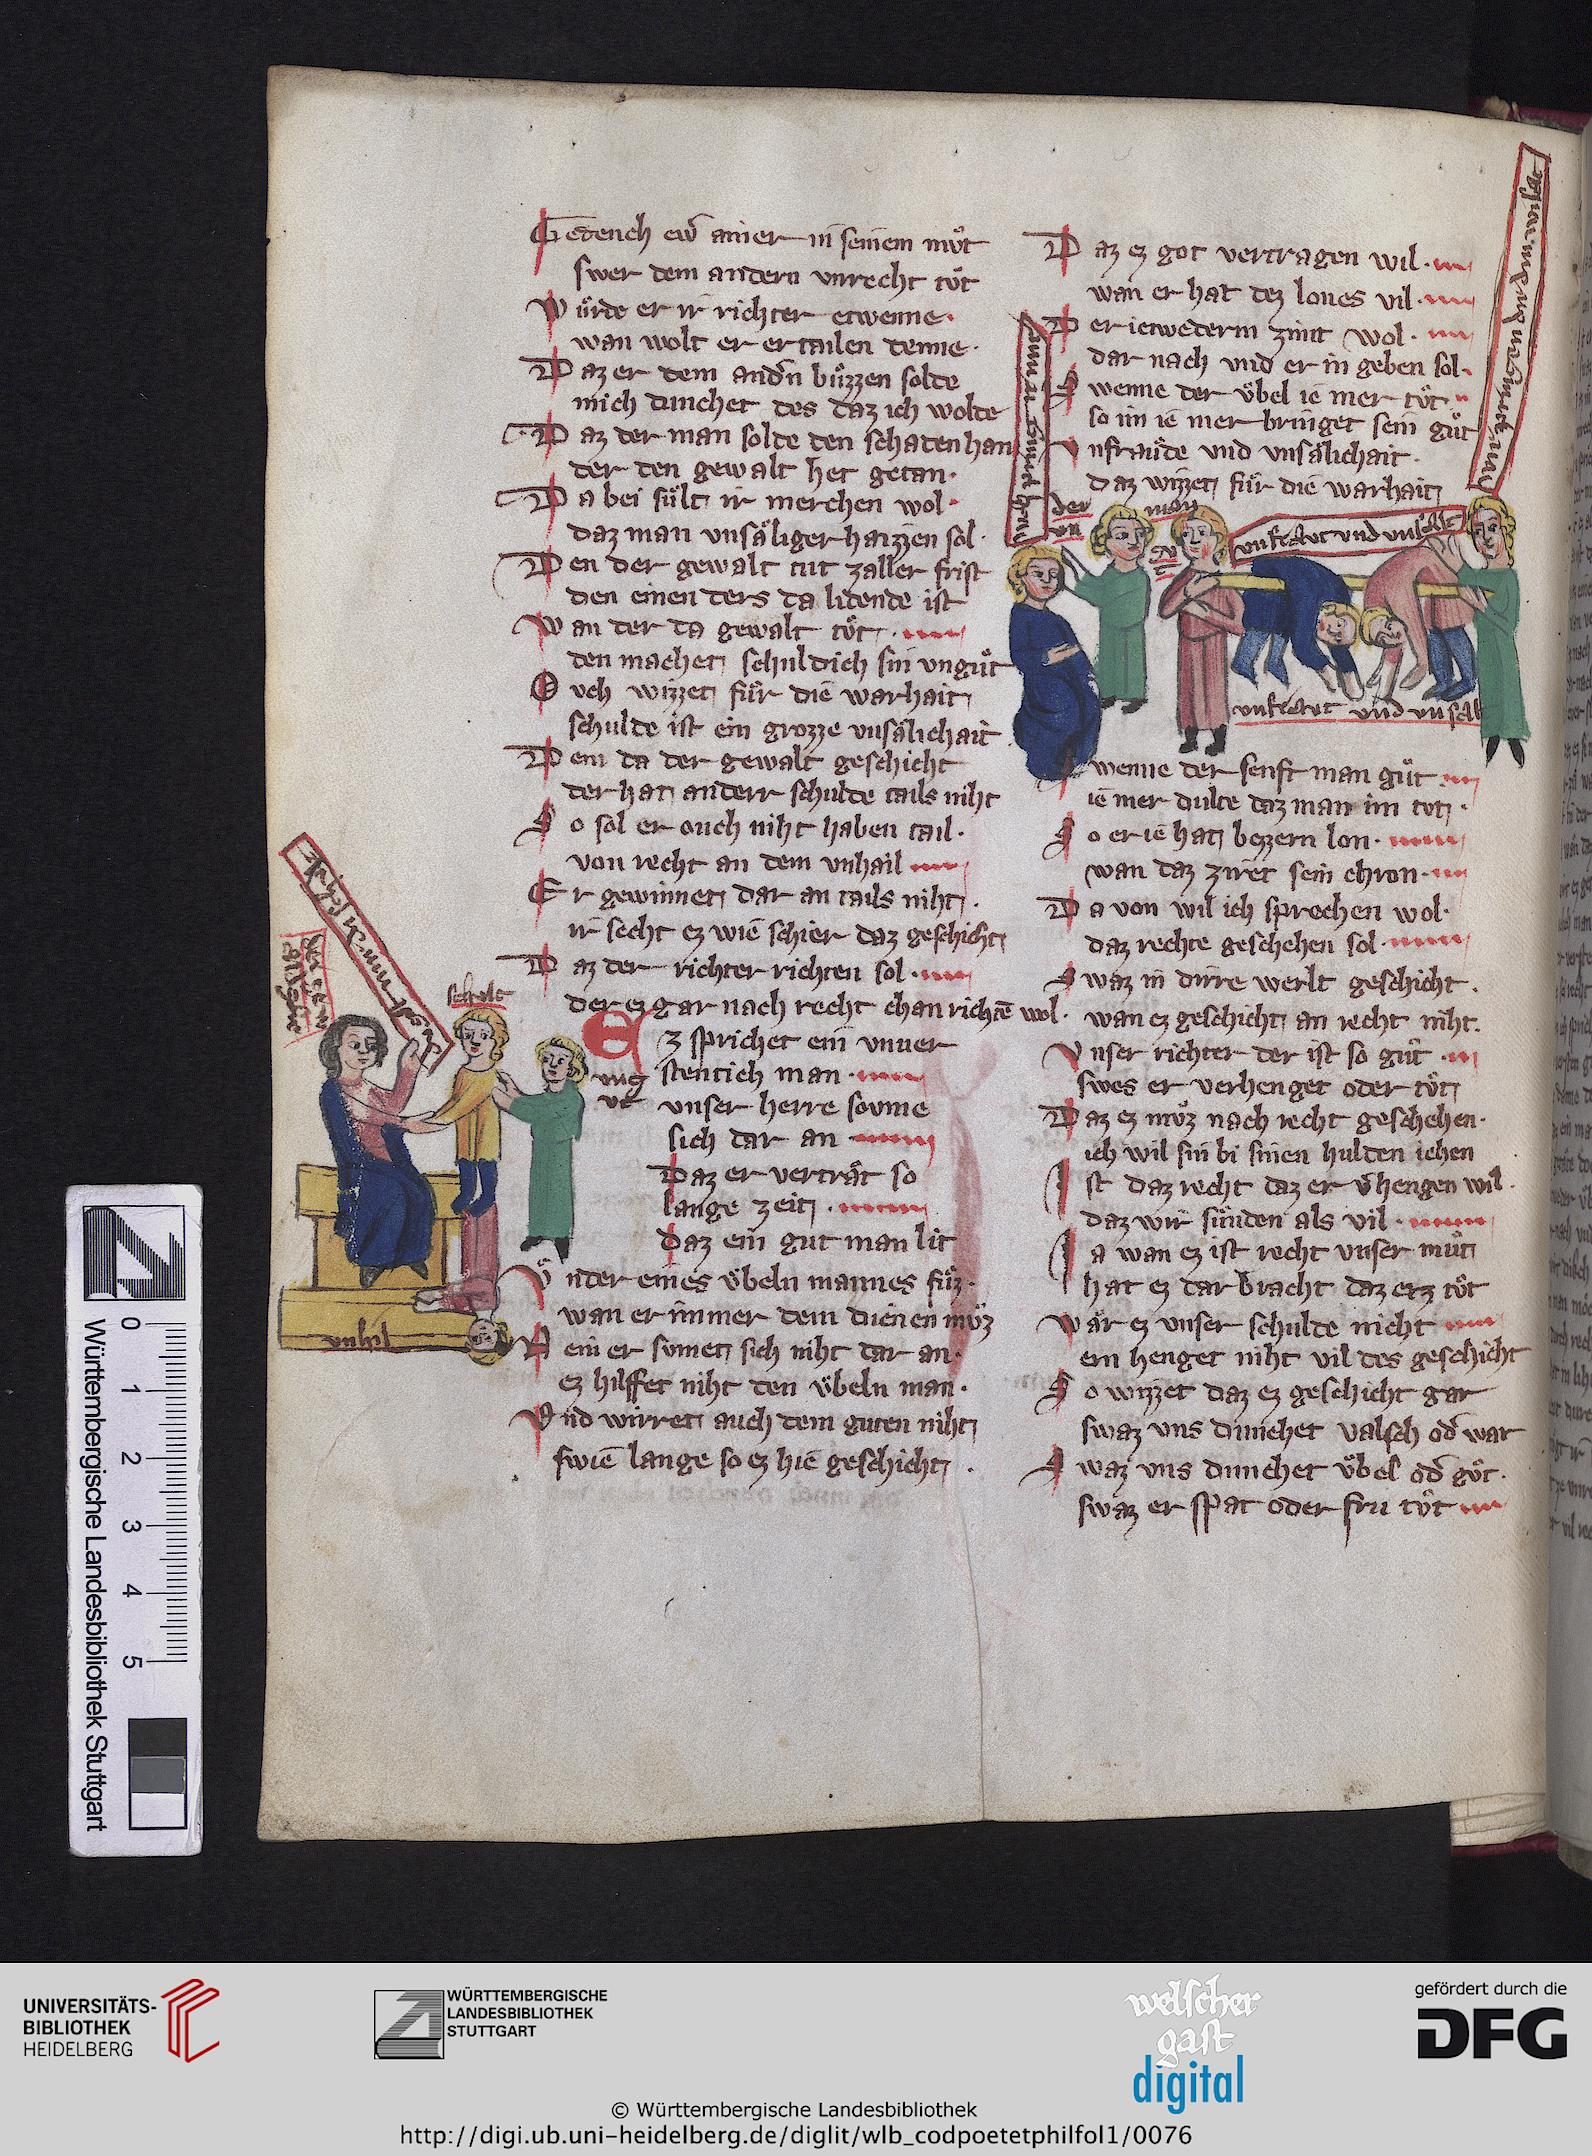 Gedench ewͥ ainer in seinem mvͦt
swer dem andern vnrecht tvͦt
Wuͤrde er ir richter etwenne·
wan wolt er ertailen denne·
Daz er dem andͥn buͤzzen solde
mich dunchet des daz ich wolde
Daz der man solde den schaden han
der den gewalt het getan·
Da bei suͤlt ir merchen wol·
daz man vnsaͤliger haizzen sol·
Den der gewalt tut zaller frist
den einen ders da lidende ist
Wan der da gewalt tvͦt·
den machet schuldich sin vnguͦt
Ovch wizzet fuͤr die warhait
schulde ist ein grozze vnsaͤlichait
Dem da der gewalt geschicht
der hat anderr schulde tails niht
So sol er ouch niht haben tail·
von recht an dem vnhail
Er gewinnet dar an tails niht·
ir secht ez wie schier daz geschicht
Daz der richter richten sol·
der ez gar nach recht chan richtē wol·
Ez sprichet ein vnuer
stentich man·
unser herre soume
sich dar an
Daz er vertraͤt so
lange zeit·
Daz ein gut man lit
Vnder eines vͤbeln mannes fuͤz·
wan er immer dem dienen mvͤz
Nein er svmet sich niht dar an·
ez hilffet niht den vͤbeln man·
Vnd wirret auch dem guten niht
swie lange so ez hie geschicht·
schalt
vng
vt
vnhil
Daz ez got vertragen wil·
wan er hat dez lones vil·
Der ietwederm zimt wol·
dar nach vnd er in geben sol·
Swenne der vͤbel ie mer tvͦt·
so im ie mer bringet sein guͦt
Vnfraude vnd vnsaͤlichait·
Daz wizzet fuͤr die warhait
der
vn
man
gu
t
vnkraut vnd vnselde
vnkraut vnd vnsel
Swenne der senft man guͦt
ie mer dulte daz man im tvt·
So er ie hat bezzern lon·
wan daz ziret sein chron·
Da von wil ich sprechen wol·
daz rechte geschehen sol·
Swaz in dirre werlt geschicht·
wan ez geschicht an recht niht·
Vnser richter der ist so guͦt·
swes er verhenget oder tvͦt
Daz ez mvͦz nach recht geschehen·
ich wil sin bi sinen hulden iehen
Ist daz recht daz er v̄hengen wil·
daz wir suͤnden als vil·
Ja wan ez ist recht vnser muͦt
hat ez dar bracht daz erz tvͦt
Waͤr ez vnser schulde nicht
ern henget niht vil des geschicht
So wizzet daz ez geschicht gar
swaz vns dunchet valsch odͥ war
Swaz vns dunchet vͤbel odͥ gvͦt·
swaz er spat oder fru tvͦt
0 1 2 3 4 5
Württembergische Landesbibliothek Stuttgart
UNIVERSITÄTS-
BIBLIOTHEK
HEIDELBERG
WÜRTTEMBERGISCHE
LANDESBIBLIOTHEK
STUTTGART
welscher
gast
digital
gefördert durch die
DFG
© Württembergische Landesbibliothek
http://digi.ub.uni-heidelberg.de/diglit/wlb_codpoetetphilfol1/0076